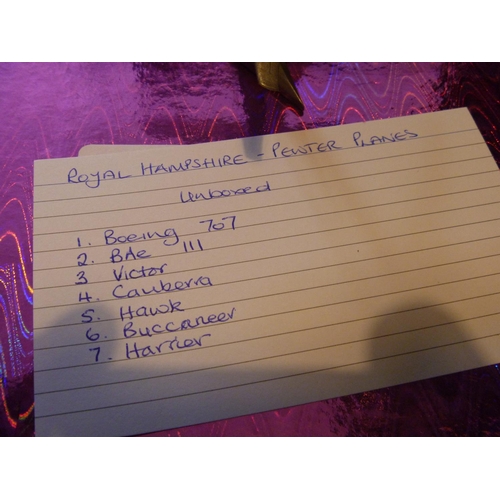 ROYAL HAMPSHIRE - PEWTER PLANES
Unboxed
1. Boeing 707
2. BAe 111
3 Victor
4. Canberra
5. Hawk
6. Buccaneer
7. Harrier